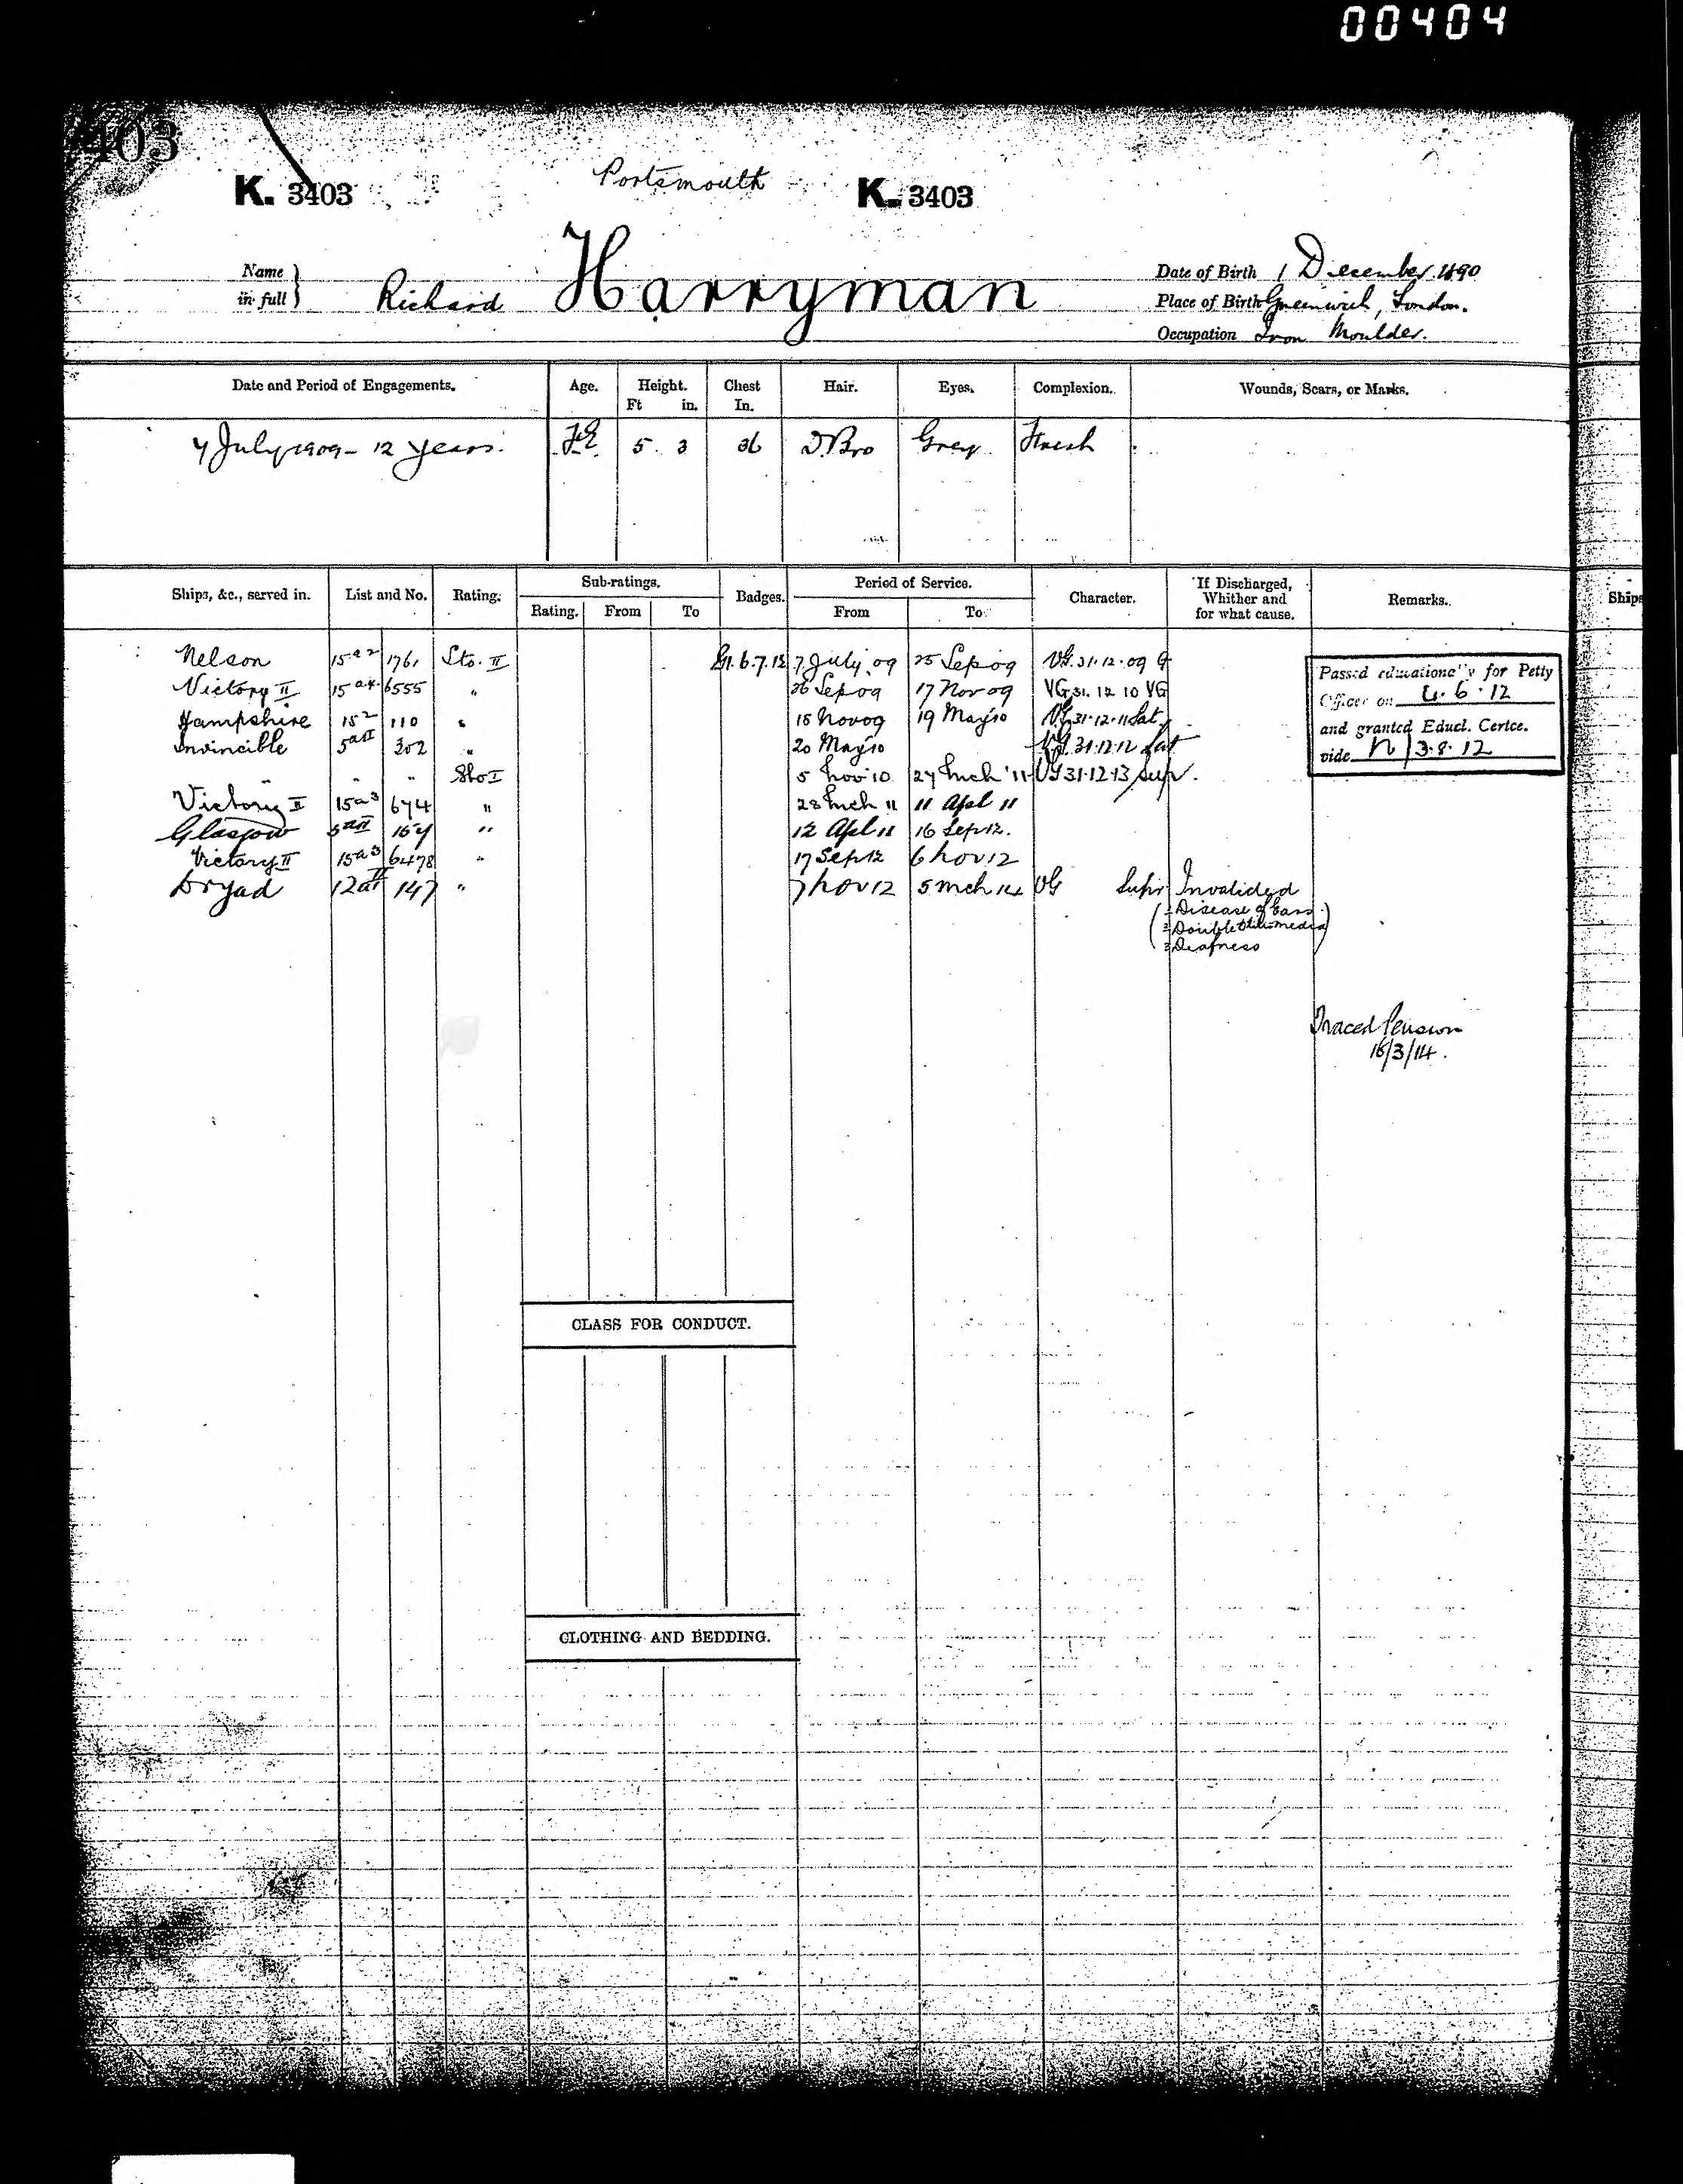 00404
403
K. 3403 Portsmouth K. 3403
Name in full } Richard Harryman
Date of Birth 1 December 1890
Place of Birth Greenwich, London.
Occupation Iron Moulder.
Date and Period of Engagements. Age. Height. Ft in. Chest In. Hair. Eyes. Complexion. Wounds, Scars, or Marks.
7 July 1909 - 12 years. 5 3 36 D.Bro Grey Fresh
Ships, &c., served in. List and No. Rating. Sub-ratings. Rating. From To Badges. Period of Service. From To Character. If Discharged, Whither and for what cause. Remarks. Ships
Nelson 15a2 1761 Sto. II G1.6.7.12 7 July 09 25 Sep 09 VG.31.12.09 G
Victory II 15a4 6555 " 26 Sep 09 17 Nov 09 VG 31.12.10 VG
Hampshire 15 2 110 " 18 Nov 09 19 May 10 VG 31.12.11 Sat
Invincible 5aII 302 " 20 May 10 VG.31.12.12 Sat
" " " Sto I 5 Nov 10 27 Mch '11 VG 31.12.13 Supr.
Victory II 15a3 674 " 28 Mch 11 11 Apl 11
Glasgow 5aII 157 " 12 Apl 11 16 Sep 12.
Victory II 15a3 6478 " 17 Sep 12 6 Nov 12
Dryad 12aII 147 " 7 Nov 12 5 Mch 14 VG Supr Invalided
(1 Disease of Ears
2 Double Otitis media
3 Deafness)
Passed educationally for Petty
Officer on 4.6.12
and granted Educl. Certce.
vide N/3.8.12
Traced Pension
16/3/14.
CLASS FOR CONDUCT.
CLOTHING AND BEDDING.